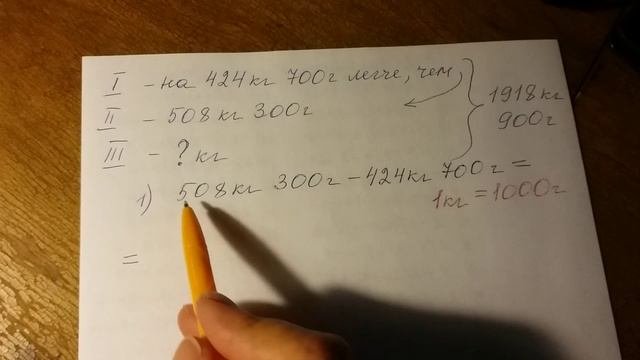 I - на 424 кг 700 г легче, чем
II - 508 кг 300 г
III - ? кг
1918 кг
900 г
1) 508 кг 300 г - 424 кг 700 г =
1 кг = 1000 г
=